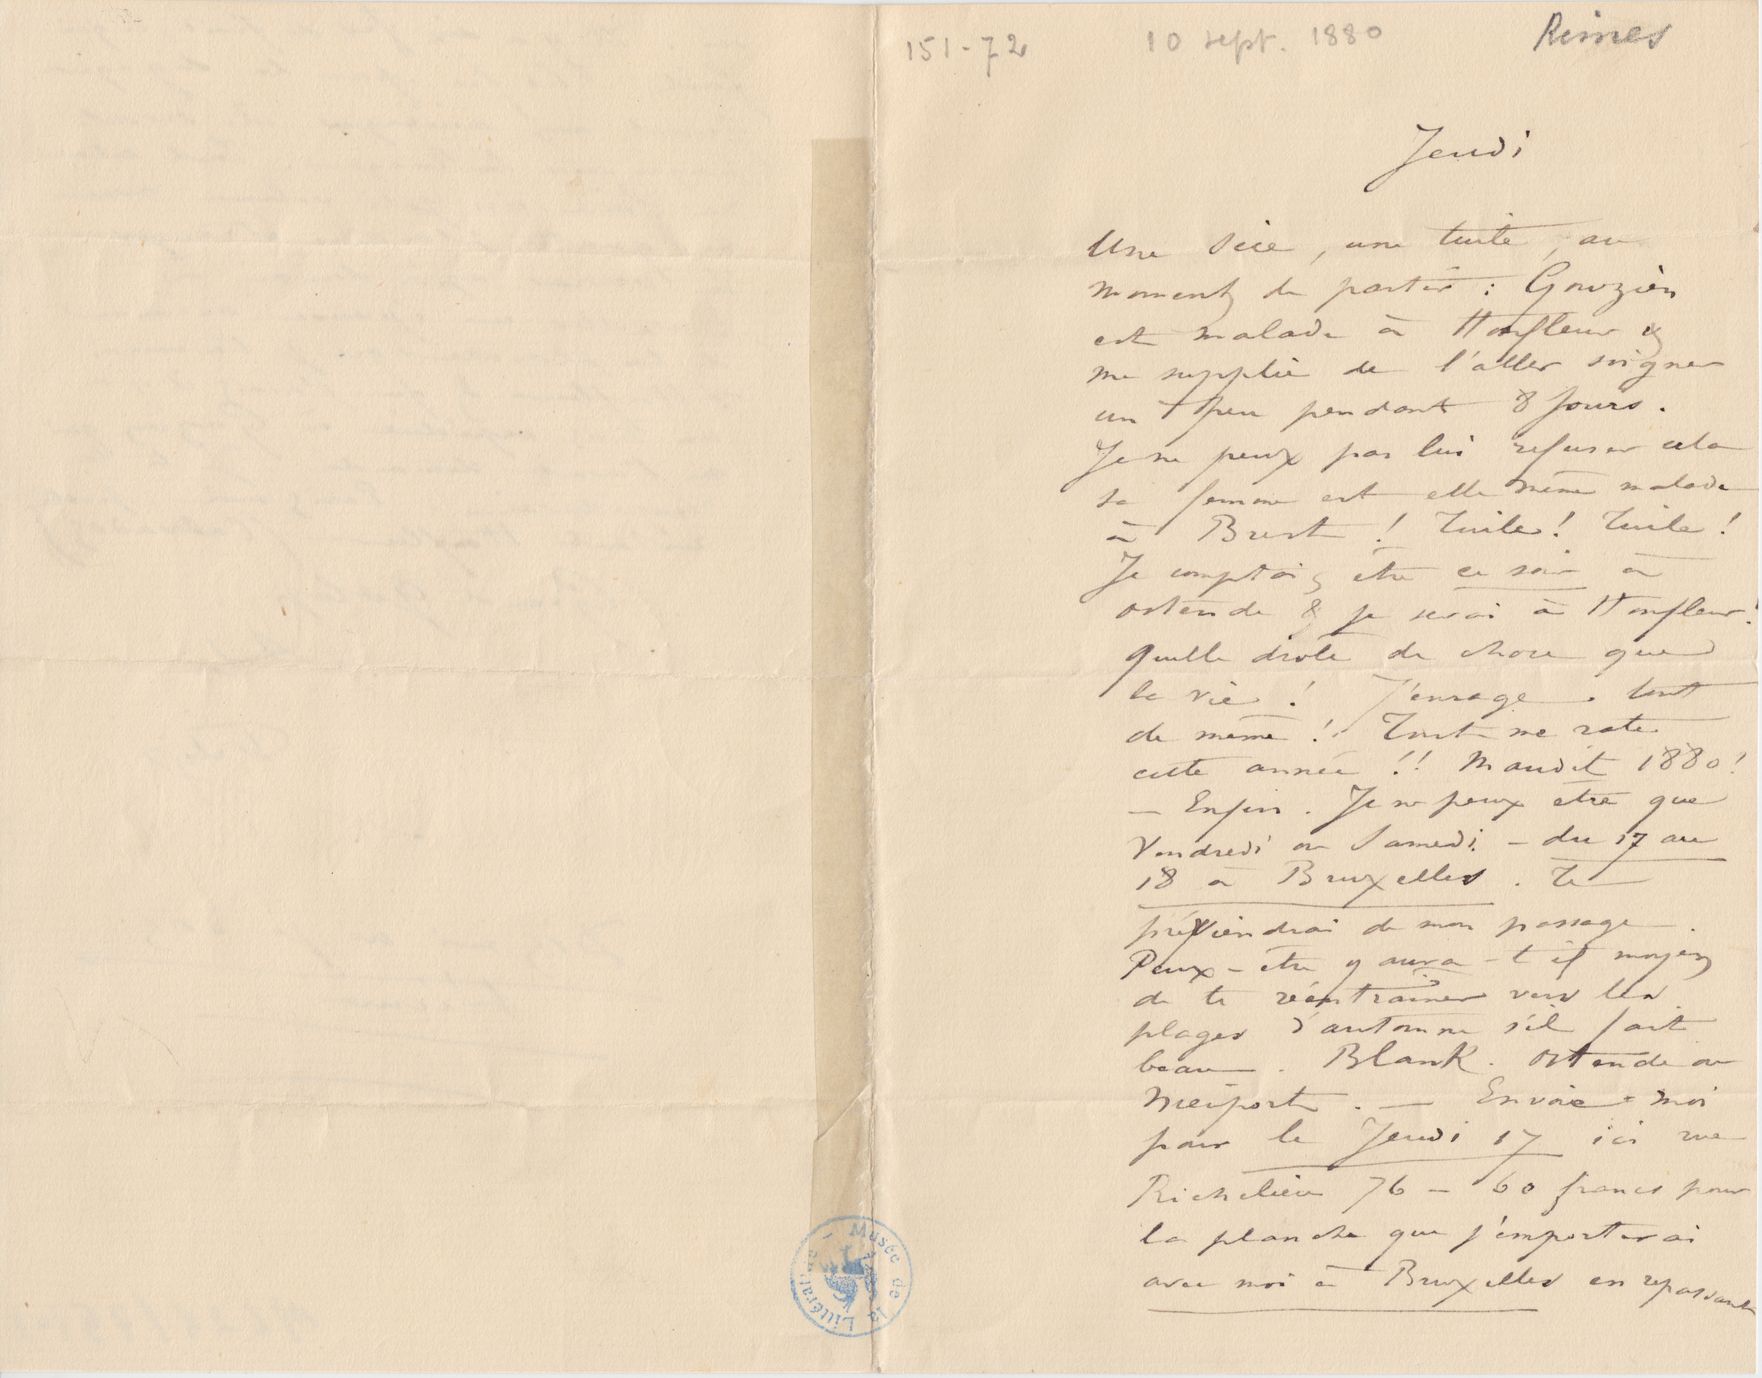 151-72 10 sept. 1880 Rimes
Jeudi
Une scie, une tuile, au
moment de partir : Gouzien
est malade à Honfleur &
me supplie de l'aller soigner
un peu pendant 8 jours.
Je ne peux pas lui refuser cela
sa femme est elle même malade
à Brest ! Tuile ! Tuile !
Je comptais être ce soir à
ostende & je serai à Honfleur !
quelle drole de chose que
la vie ! J'enrage . tout
de même ! Tout me rate
cette année !! Maudit 1880 !
— Enfin . Je ne peux etre que
Vendredi ou Samedi – du 17 au
18 à Bruxelles . Te
préviendrai de mon passage .
Peux-etre y aura-t il moyen
de te réentrainer vers les
plages d'automne s'il fait
beau . Blank . Ostende ou
Nieuport . — Envoie-moi
pour le Jeudi 17 ici rue
Richelieu 76 – 60 francs pour
la planche que j'emporterai
avec moi à Bruxelles en repassant
Musée de la Littérature